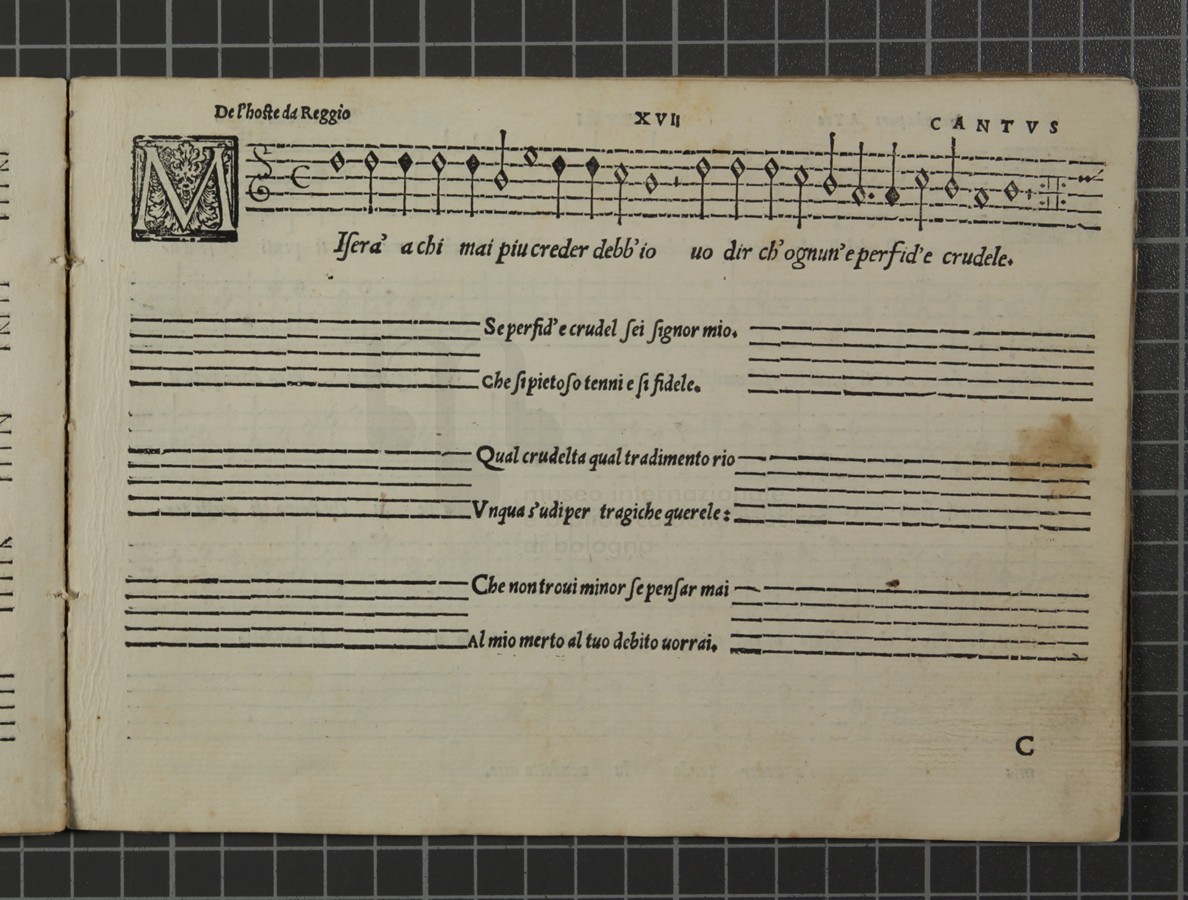 De l'hoste da Reggio
XVII
CANTVS
MIſera' a chi mai piu creder debb'io uo dir ch'ognun'e perfid'e crudele.
Se perfid'e crudel ſei ſignor mio.
Che ſi pietoſo tenni e ſi fidele.
Qual crudelta qual tradimento rio
Vnqua s'udi per tragiche querele:
Che non troui minor ſe penſar mai
Al mio merto al tuo debito uorrai.
C
museo internazionale
di bologna